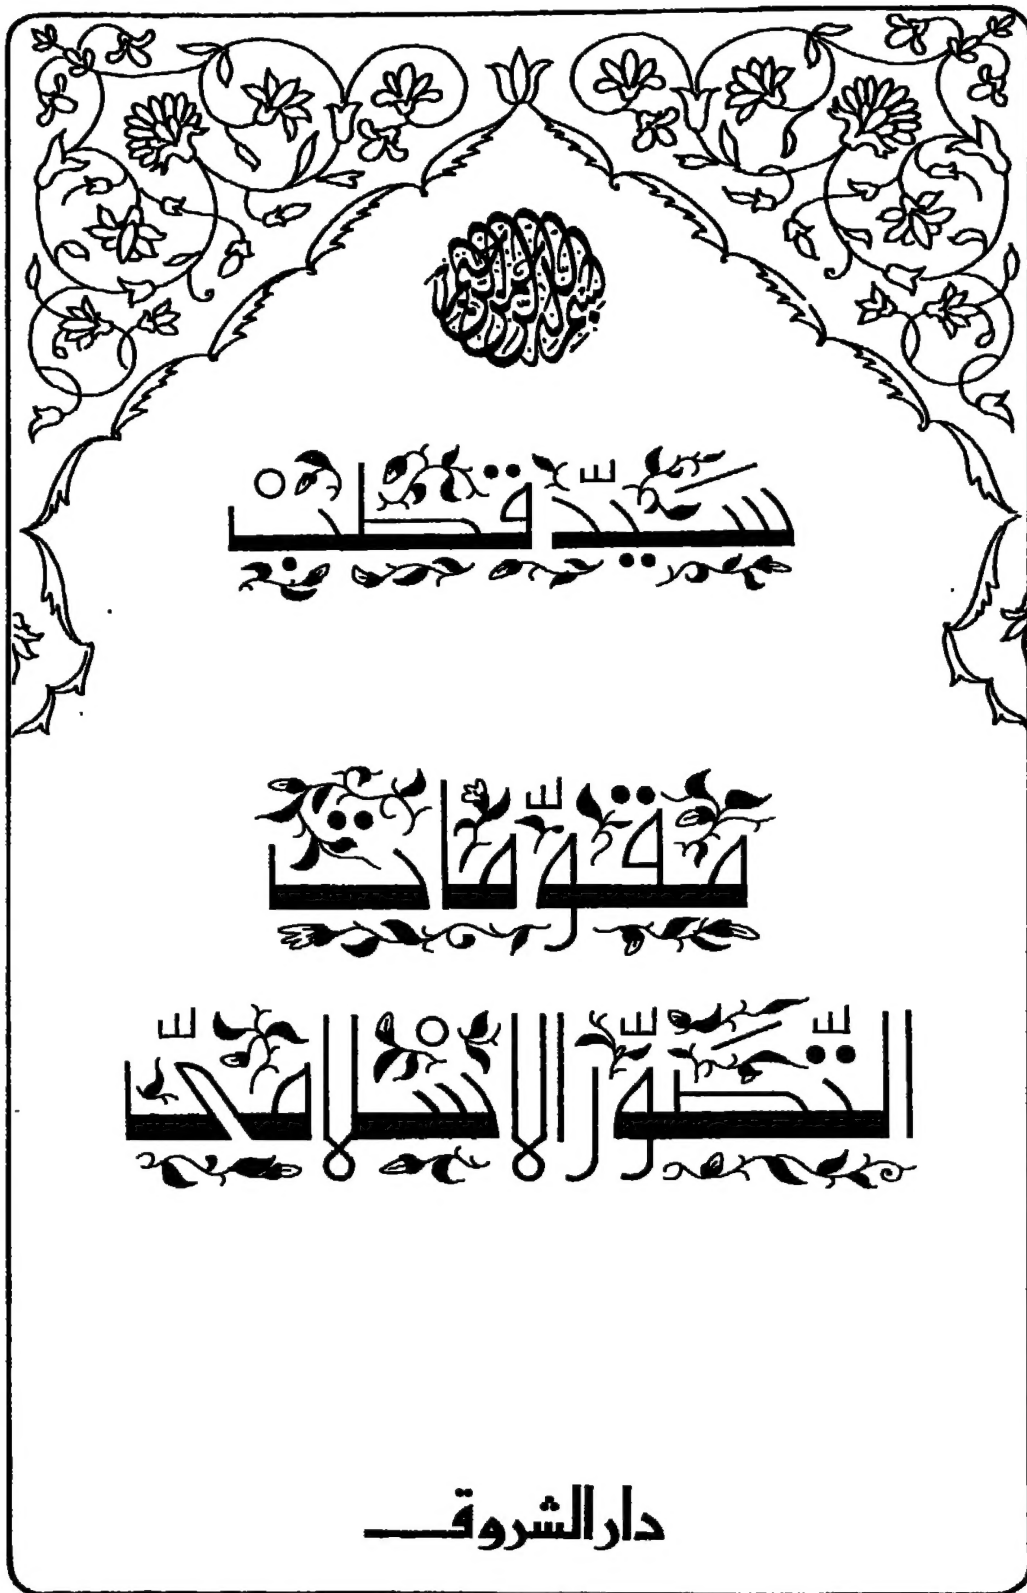 بسم الله الرحمن الرحيم
سَيِّد قُطْب
مقوّمات
التَّصَوّر الإسْلامىّ
دار الشروق